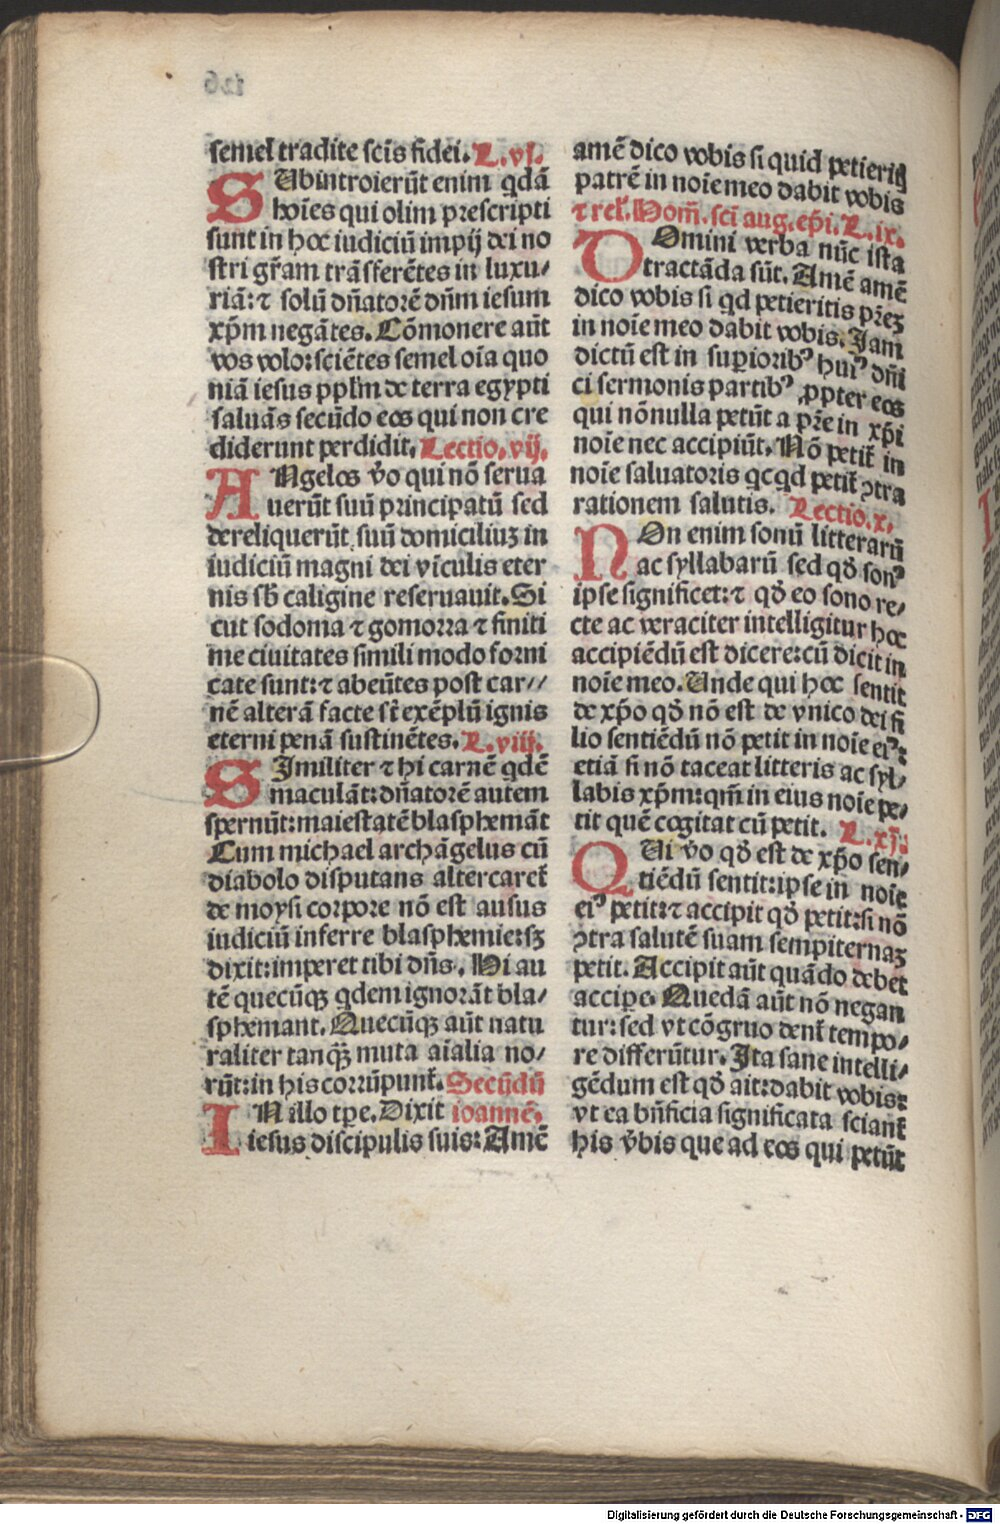 semel tradite sct̄s fidei. L. vj.
SUbintroierūt enim qdā
hoīes qui olim prescripti
sunt in hoc iudiciū impij dei no
stri gr̄am trāsferētes in luxu/
riā: ⁊ solū dn̄atorē dn̄m iesum
xp̄m negātes. Cōmonere aūt
vos volo: sciētes semel oīa quo
niā iesus pplm̄ de terra egypti
saluās secūdo eos qui non cre
diderunt perdidit. Lectio. vij.
ANgelos v̄o qui nō serua
uerūt suū principatū sed
dereliquerūt suū domiciliuꝫ in
iudiciū magni dei vīculis eter
nis sb̄ caligine reseruauit. Si
cut sodoma ⁊ gomorra ⁊ finiti
me ciuitates simili modo forni
cate sunt: ⁊ abeūtes post car//
nē alterā facte st̄ exēplū ignis
eterni penā sustinētes. L. viij.
SImiliter ⁊ hi carnē qdē
maculāt: dn̄atorē autem
spernūt: maiestatē blasphemāt
Cum michael archāgelus cū
diabolo disputans altercaret᷑
de moysi corpore nō est ausus
iudiciū inferre blasphemie: sꝫ
dixit: imperet tibi dn̄s. Hi au
tē quecūqꝫ qdem ignorāt bla/
sphemant. Quecūqꝫ aūt natu
raliter tanqꝫ̄ muta aīalia no/
rūt: in his corrūpunt᷑. Secūdū
IN illo tp̄e. Dixit ioannē.
iesus discipulis suis: Amē
amē dico vobis si quid petieritꝭ
patrē in noīe meo dabit vobis
⁊ rel̓. Hom̄. sci aug. ep̄i. L. ix.
DOmini verba nūc ista
tractāda sūt. Amē amē
dico vobis si qd petieritis pr̄eꝫ
in noīe meo dabit vobis. Jam
dictū est in superioribꝰ huiꝰ dn̄i
ci sermonis partibꝰ ꝓpter eos
qui nōnulla petūt a pr̄e in xp̄i
noīe nec accipiūt. Nō petit᷑ in
noīe saluatoris qcqd petit᷑ ꝯtra
rationem salutis. Lectio. x.
NOn enim sonū litterarū
ac syllabarū sed qd̄ sonꝰ
ipse significet: ⁊ qd̄ eo sono re/
cte ac veraciter intelligitur hoc
accipiēdū est dicere: cū dicit in
noīe meo. Unde qui hoc sentit
de xp̄o qd̄ nō est de vnico dei fi
lio sentiēdū nō petit in noīe eiꝰ:
etiā si nō taceat litteris ac syl/
labis xp̄m: qm̄ in eius noīe pe/
tit quē cogitat cū petit. L. xj.
QUi v̄o qd̄ est de xp̄o sen/
tiēdū sentit: ipse in noīe
eiꝰ petit: ⁊ accipit qd̄ petit: si nō
ꝯtra salutē suam sempiternaꝫ
petit. Accipit aūt quādo debet
accipe. Quedā aūt nō negan
tur: sed vt cōgruo dent᷑ tempo/
re differūtur. Ita sane intelli/
gēdum est qd̄ ait: dabit vobis:
vt ea bn̄ficia significata sciant᷑
his v̄bis que ad eos qui petūt
Digitalisierung gefördert durch die Deutsche Forschungsgemeinschaft - DFG